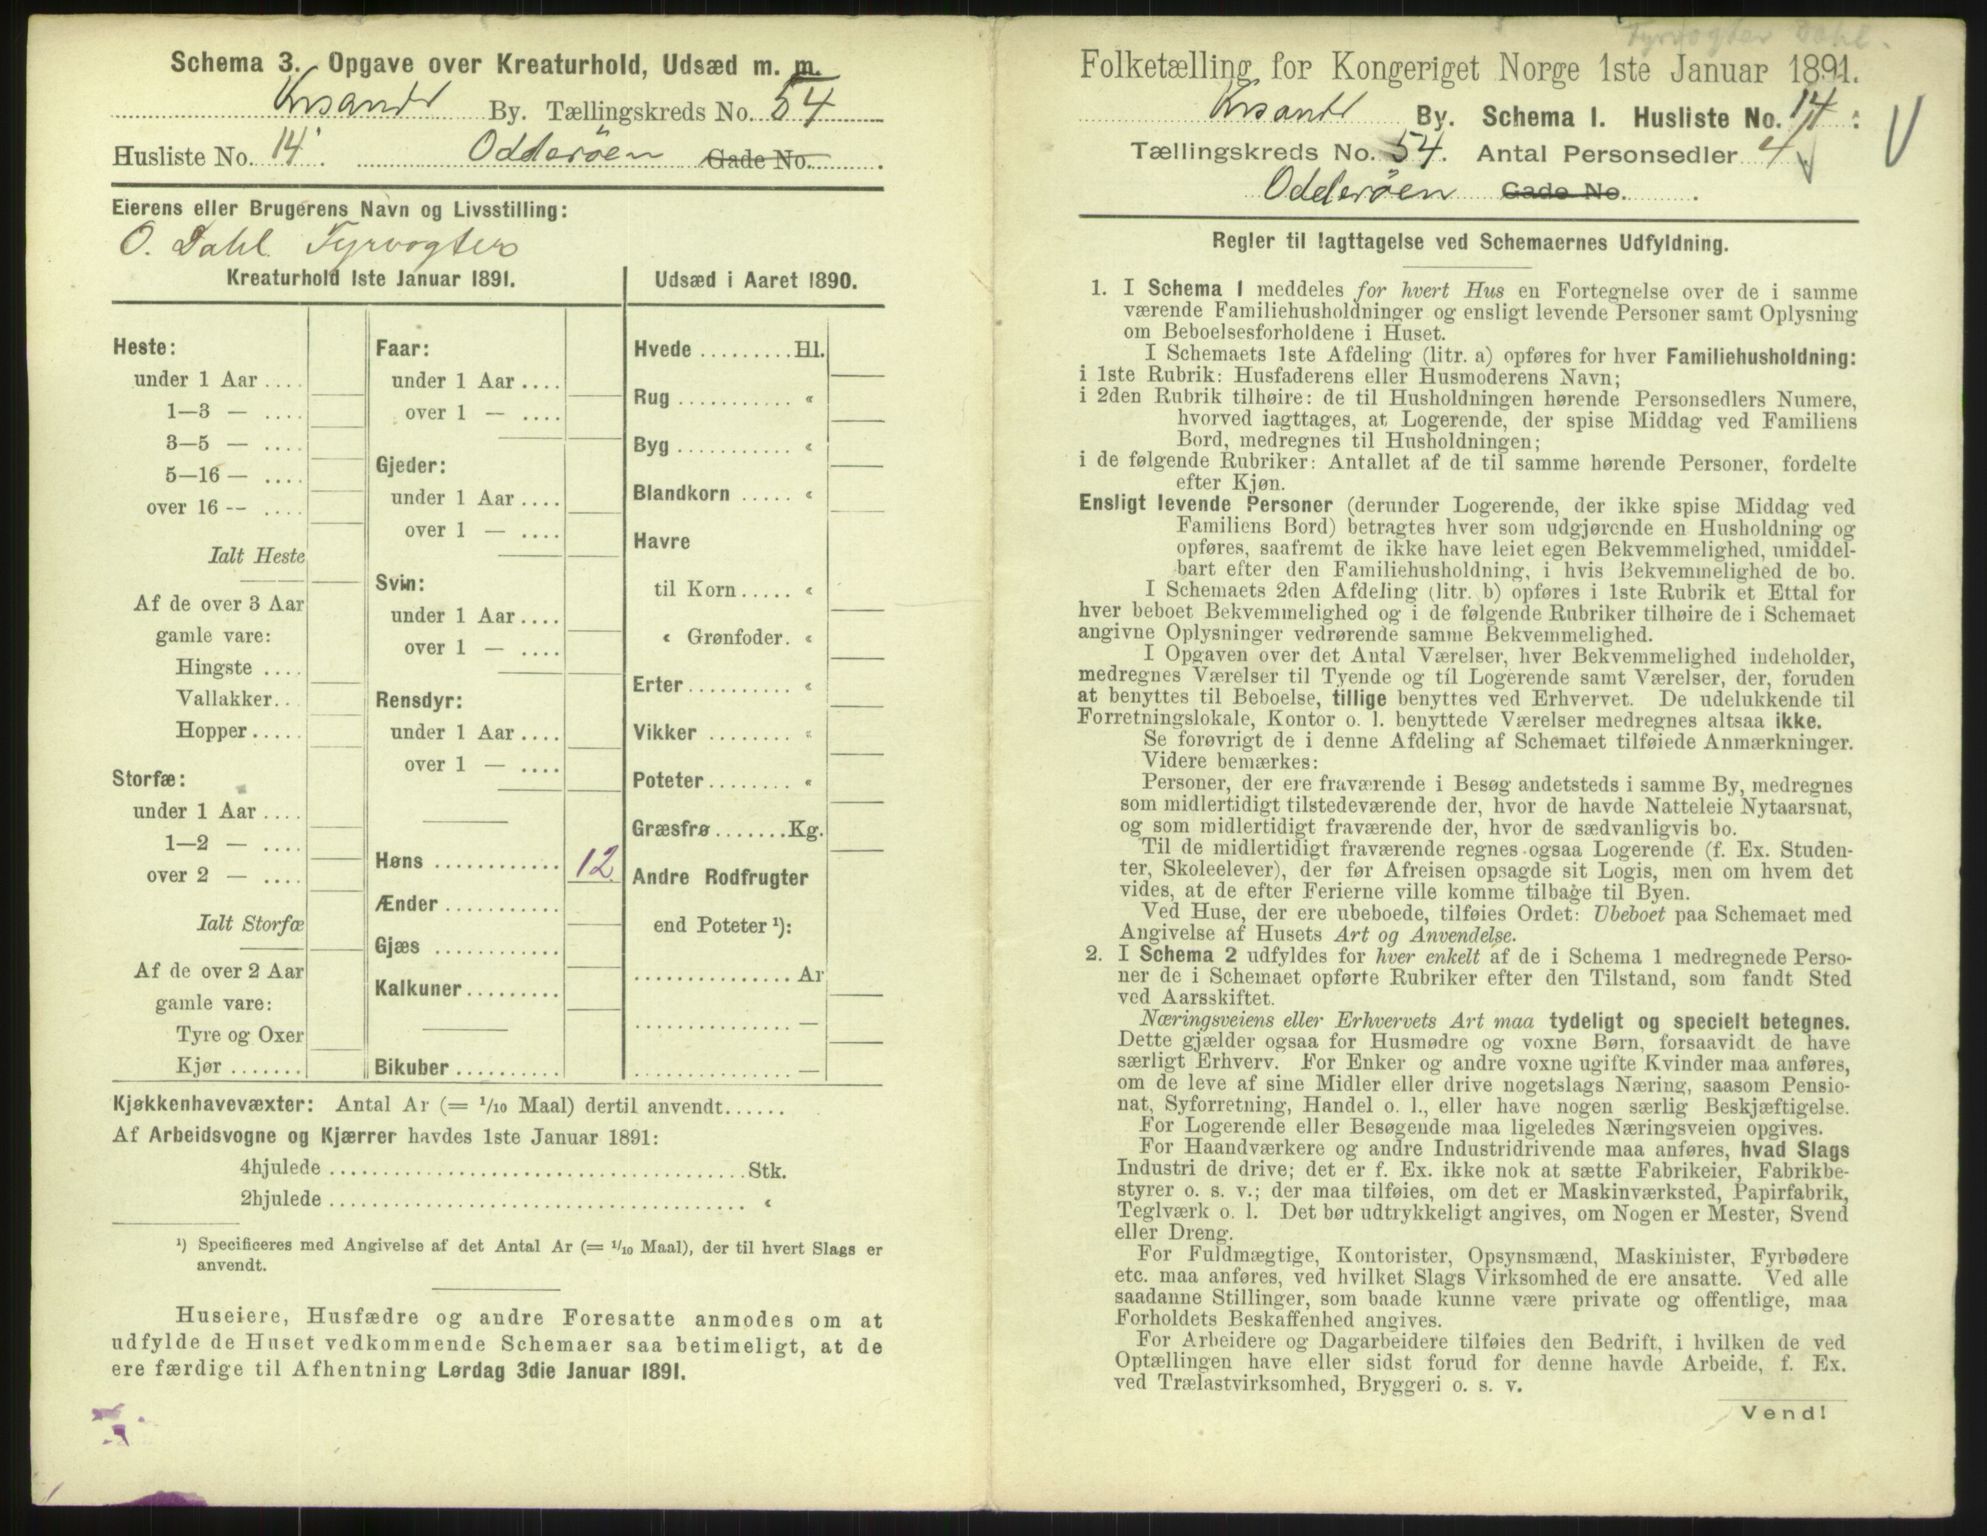 Schema 3. Opgave over Kreaturhold, Udsæd m. m.
Krsand By. Tællingskreds No. 54
Husliste No. 14. Odderöen Gade No.
Eierens eller Brugerens Navn og Livsstilling:
O. Dahl Fyrvogter
Kreaturhold 1ste Januar 1891.
Heste:
under 1 Aar ....
1—3 — ....
3—5 — ....
5—16 — ....
over 16 — ....
Ialt Heste
Af de over 3 Aar
gamle vare:
Hingste ....
Vallakker..
Hopper.....
Storfæ:
under 1 Aar ....
1—2 — ....
over 2 — ....
Ialt Storfæ
Af de over 2 Aar
gamle vare:
Tyre og Oxer
Kjør .......
Faar:
under 1 Aar ....
over 1 — ....
Gjeder:
under 1 Aar ....
over 1 — ....
Svin:
under 1 Aar ....
over 1 — ....
Rensdyr:
under 1 Aar ....
over 1 — ....
Høns ............ 12
Ænder ...........
Gjæs ............
Kalkuner.........
Bikuber ..........
Udsæd i Aaret 1890.
Hvede .........Hl.
Rug ........... «
Byg ........... «
Blandkorn ..... «
Havre
til Korn..... «
« Grønfoder. «
Erter.......... «
Vikker ........ «
Poteter........ «
Græsfrø.......Kg.
Andre Rodfrugter
end Poteter ¹):
.............. Ar
.............. —
.............. —
Kjøkkenhavevæxter: Antal Ar (= 1/10 Maal) dertil anvendt......
Af Arbeidsvogne og Kjærrer havdes 1ste Januar 1891:
4hjulede ........................................Stk.
2hjulede ........................................ «
¹) Specificeres med Angivelse af det Antal Ar (= 1/10 Maal), der til hvert Slags er
anvendt.
Huseiere, Husfædre og andre Foresatte anmodes om at
udfylde de Huset vedkommende Schemaer saa betimeligt, at de
ere færdige til Afhentning Lørdag 3die Januar 1891.
Fyrvogter Dahl.
Folketælling for Kongeriget Norge 1ste Januar 1891.
Krsand By. Schema I. Husliste No. 14:
Tællingskreds No. 54. Antal Personsedler 4
Odderöen Gade No.
Regler til Iagttagelse ved Schemaernes Udfyldning.
1. I Schema I meddeles for hvert Hus en Fortegnelse over de i samme
værende Familiehusholdninger og ensligt levende Personer samt Oplysning
om Beboelsesforholdene i Huset.
I Schemaets 1ste Afdeling (litr. a) opføres for hver Familiehusholdning:
i 1ste Rubrik: Husfaderens eller Husmoderens Navn;
i 2den Rubrik tilhøire: de til Husholdningen hørende Personsedlers Numere,
hvorved iagttages, at Logerende, der spise Middag ved Familiens
Bord, medregnes til Husholdningen;
i de følgende Rubriker: Antallet af de til samme hørende Personer, fordelte
efter Kjøn.
Ensligt levende Personer (derunder Logerende, der ikke spise Middag ved
Familiens Bord) betragtes hver som udgjørende en Husholdning og
opføres, saafremt de ikke have leiet egen Bekvemmelighed, umiddel-
bart efter den Familiehusholdning, i hvis Bekvemmelighed de bo.
I Schemaets 2den Afdeling (litr. b) opføres i 1ste Rubrik et Ettal for
hver beboet Bekvemmelighed og i de følgende Rubriker tilhøire de i Schemaet
angivne Oplysninger vedrørende samme Bekvemmelighed.
I Opgaven over det Antal Værelser, hver Bekvemmelighed indeholder,
medregnes Værelser til Tyende og til Logerende samt Værelser, der, foruden
at benyttes til Beboelse, tillige benyttes ved Erhvervet. De udelukkende til
Forretningslokale, Kontor o. l. benyttede Værelser medregnes altsaa ikke.
Se forøvrigt de i denne Afdeling af Schemaet tilføiede Anmærkninger.
Videre bemærkes:
Personer, der ere fraværende i Besøg andetsteds i samme By, medregnes
som midlertidigt tilstedeværende der, hvor de havde Natteleie Nytaarsnat,
og som midlertidigt fraværende der, hvor de sædvanligvis bo.
Til de midlertidigt fraværende regnes ogsaa Logerende (f. Ex. Studen-
ter, Skoleelever), der før Afreisen opsagde sit Logis, men om hvem det
vides, at de efter Ferierne ville komme tilbage til Byen.
Ved Huse, der ere ubeboede, tilføies Ordet: Ubeboet paa Schemaet med
Angivelse af Husets Art og Anvendelse.
2. I Schema 2 udfyldes for hver enkelt af de i Schema 1 medregnede Perso-
ner de i Schemaet opførte Rubriker efter den Tilstand, som fandt Sted
ved Aarsskiftet.
Næringsveiens eller Erhvervets Art maa tydeligt og specielt betegnes.
Dette gjælder ogsaa for Husmødre og voxne Børn, forsaavidt de have
særligt Erhverv. For Enker og andre voxne ugifte Kvinder maa anføres,
om de leve af sine Midler eller drive nogetslags Næring, saasom Pensio-
nat, Syforretning, Handel o. l., eller have nogen særlig Beskjæftigelse.
For Logerende eller Besøgende maa ligeledes Næringsveien opgives.
For Haandværkere og andre Industridrivende maa anføres, hvad Slags
Industri de drive; det er f. Ex. ikke nok at sætte Fabrikeier, Fabrikbe-
styrer o. s. v.; der maa tilføies, om det er Maskinværksted, Papirfabrik,
Teglværk o. l. Det bør udtrykkeligt angives, om Nogen er Mester, Svend
eller Dreng.
For Fuldmægtige, Kontorister, Opsynsmænd, Maskinister, Fyrbødere
etc. maa anføres, ved hvilket Slags Virksomhed de ere ansatte. Ved alle
saadanne Stillinger, som baade kunne være private og offentlige, maa
Forholdets Beskaffenhed angives.
For Arbeidere og Dagarbeidere tilføies den Bedrift, i hvilken de ved
Optællingen have eller sidst forud for denne havde Arbeide, f. Ex.
ved Trælastvirksomhed, Bryggeri o. s. v.
Vend!